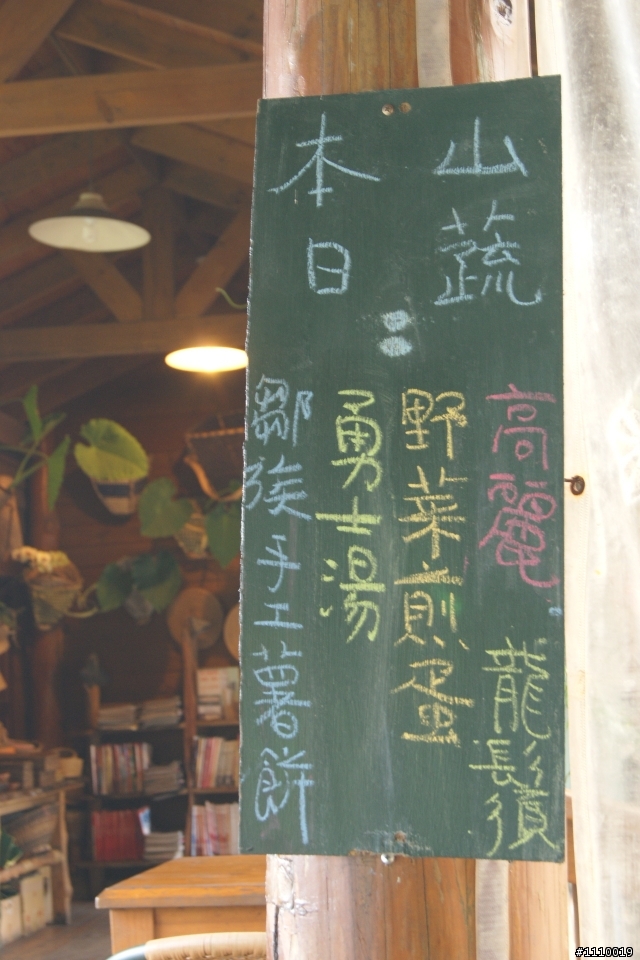 本日
山蔬
：
高麗、龍鬚
野菜煎蛋
勇士湯
鄒族手工薯餅
#1110019